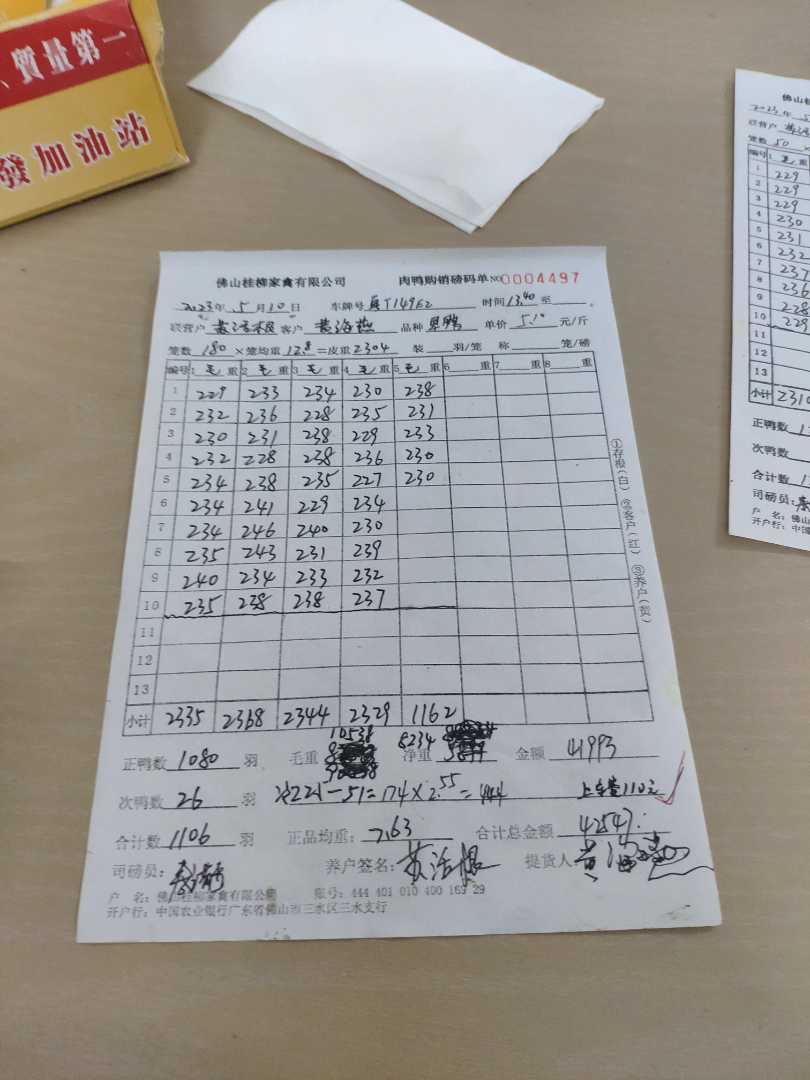 、質量第一
發加油站
佛山桂柳家禽有限公司 肉鸭购销磅码单 NO 0004497
2023年 5月10日 车牌号 T14962 时间13.40 至 。
养户 客户 黄海燕 品种 单价 5.10 元/斤
笼数 180 ×笼均重 12.8 =皮重 2304 装 羽/笼 称 笼/磅
编号 1 毛 重 2 毛 重 3 毛 重 4 毛 重 5 毛 重 6 重 7 重 8 重
1 229 233 234 230 238
2 232 236 228 235 231
3 230 231 238 229 233
4 232 228 238 236 230
5 234 238 235 227 230
6 234 241 229 234
7 234 246 240 230
8 235 243 231 239
9 240 234 233 232
10 235 238 238 237
11
12
13
小计 2335 2368 2344 2329 1162
正鸭数 1080 羽 毛重 10538 净重 8234 金额 41993
次鸭数 26 羽 221-51=174×2.55=444 上车费110元
合计数 1106 羽 正品均重: 7.63 合计总金额 42547.
司磅员: 养户签名: 提货人
户 名: 佛山桂柳家禽有限公司 账号: 444 401 010 400 169 29
开户行: 中国农业银行广东省佛山市三水区三水支行
①存根(白) ②客户(红) ③养户(黄)
佛山桂
2023年 5
笼数 50
编号 1 毛 重
1 229
2 229
3 229
4 230
5 231
6 232
7 237
8 236
9 228
10 229
11
12
13
小计 2310
正鸭数
次鸭数
合计数
司磅员:
户 名: 佛山
开户行: 中国